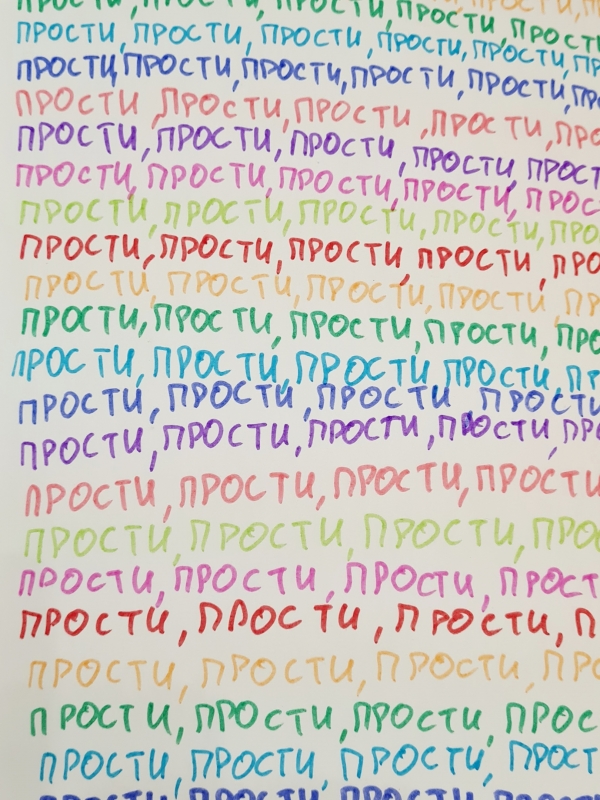 ПРОСТИ, ПРОСТИ, ПРОСТИ, ПРОСТИ,
ПРОСТИ, ПРОСТИ, ПРОСТИ, ПРОСТИ, ПРОСТИ, ПР
ПРОСТИ, ПРОСТИ, ПРОСТИ, ПРОСТИ, ПРОСТИ, ПР
ПРОСТИ, ПРОСТИ, ПРОСТИ, ПРОСТИ, ПРО
ПРОСТИ, ПРОСТИ, ПРОСТИ, ПРОСТИ, ПРОСТ
ПРОСТИ, ПРОСТИ, ПРОСТИ, ПРОСТИ, ПРОС
ПРОСТИ, ПРОСТИ, ПРОСТИ, ПРОСТИ, ПРО
ПРОСТИ, ПРОСТИ, ПРОСТИ, ПРОСТИ, ПРО
ПРОСТИ, ПРОСТИ, ПРОСТИ, ПРОСТИ, ПР
ПРОСТИ, ПРОСТИ, ПРОСТИ, ПРОСТИ, ПРО
ПРОСТИ, ПРОСТИ, ПРОСТИ ПРОСТИ, ПР
ПРОСТИ, ПРОСТИ, ПРОСТИ ПРОСТИ
ПРОСТИ, ПРОСТИ, ПРОСТИ, ПРОСТИ, ПРО
ПРОСТИ, ПРОСТИ, ПРОСТИ, ПРОСТИ
ПРОСТИ, ПРОСТИ, ПРОСТИ, ПРО
ПРОСТИ, ПРОСТИ, ПРОСТИ, ПРОСТ
ПРОСТИ, ПРОСТИ, ПРОСТИ, П
ПРОСТИ, ПРОСТИ, ПРОСТИ, ПРО
ПРОСТИ, ПРОСТИ, ПРОСТИ, ПРОС
ПРОСТИ, ПРОСТИ, ПРОСТИ, ПРОСТ
ПРОСТИ, ПРОСТИ, ПРОСТИ, ПРОСТ